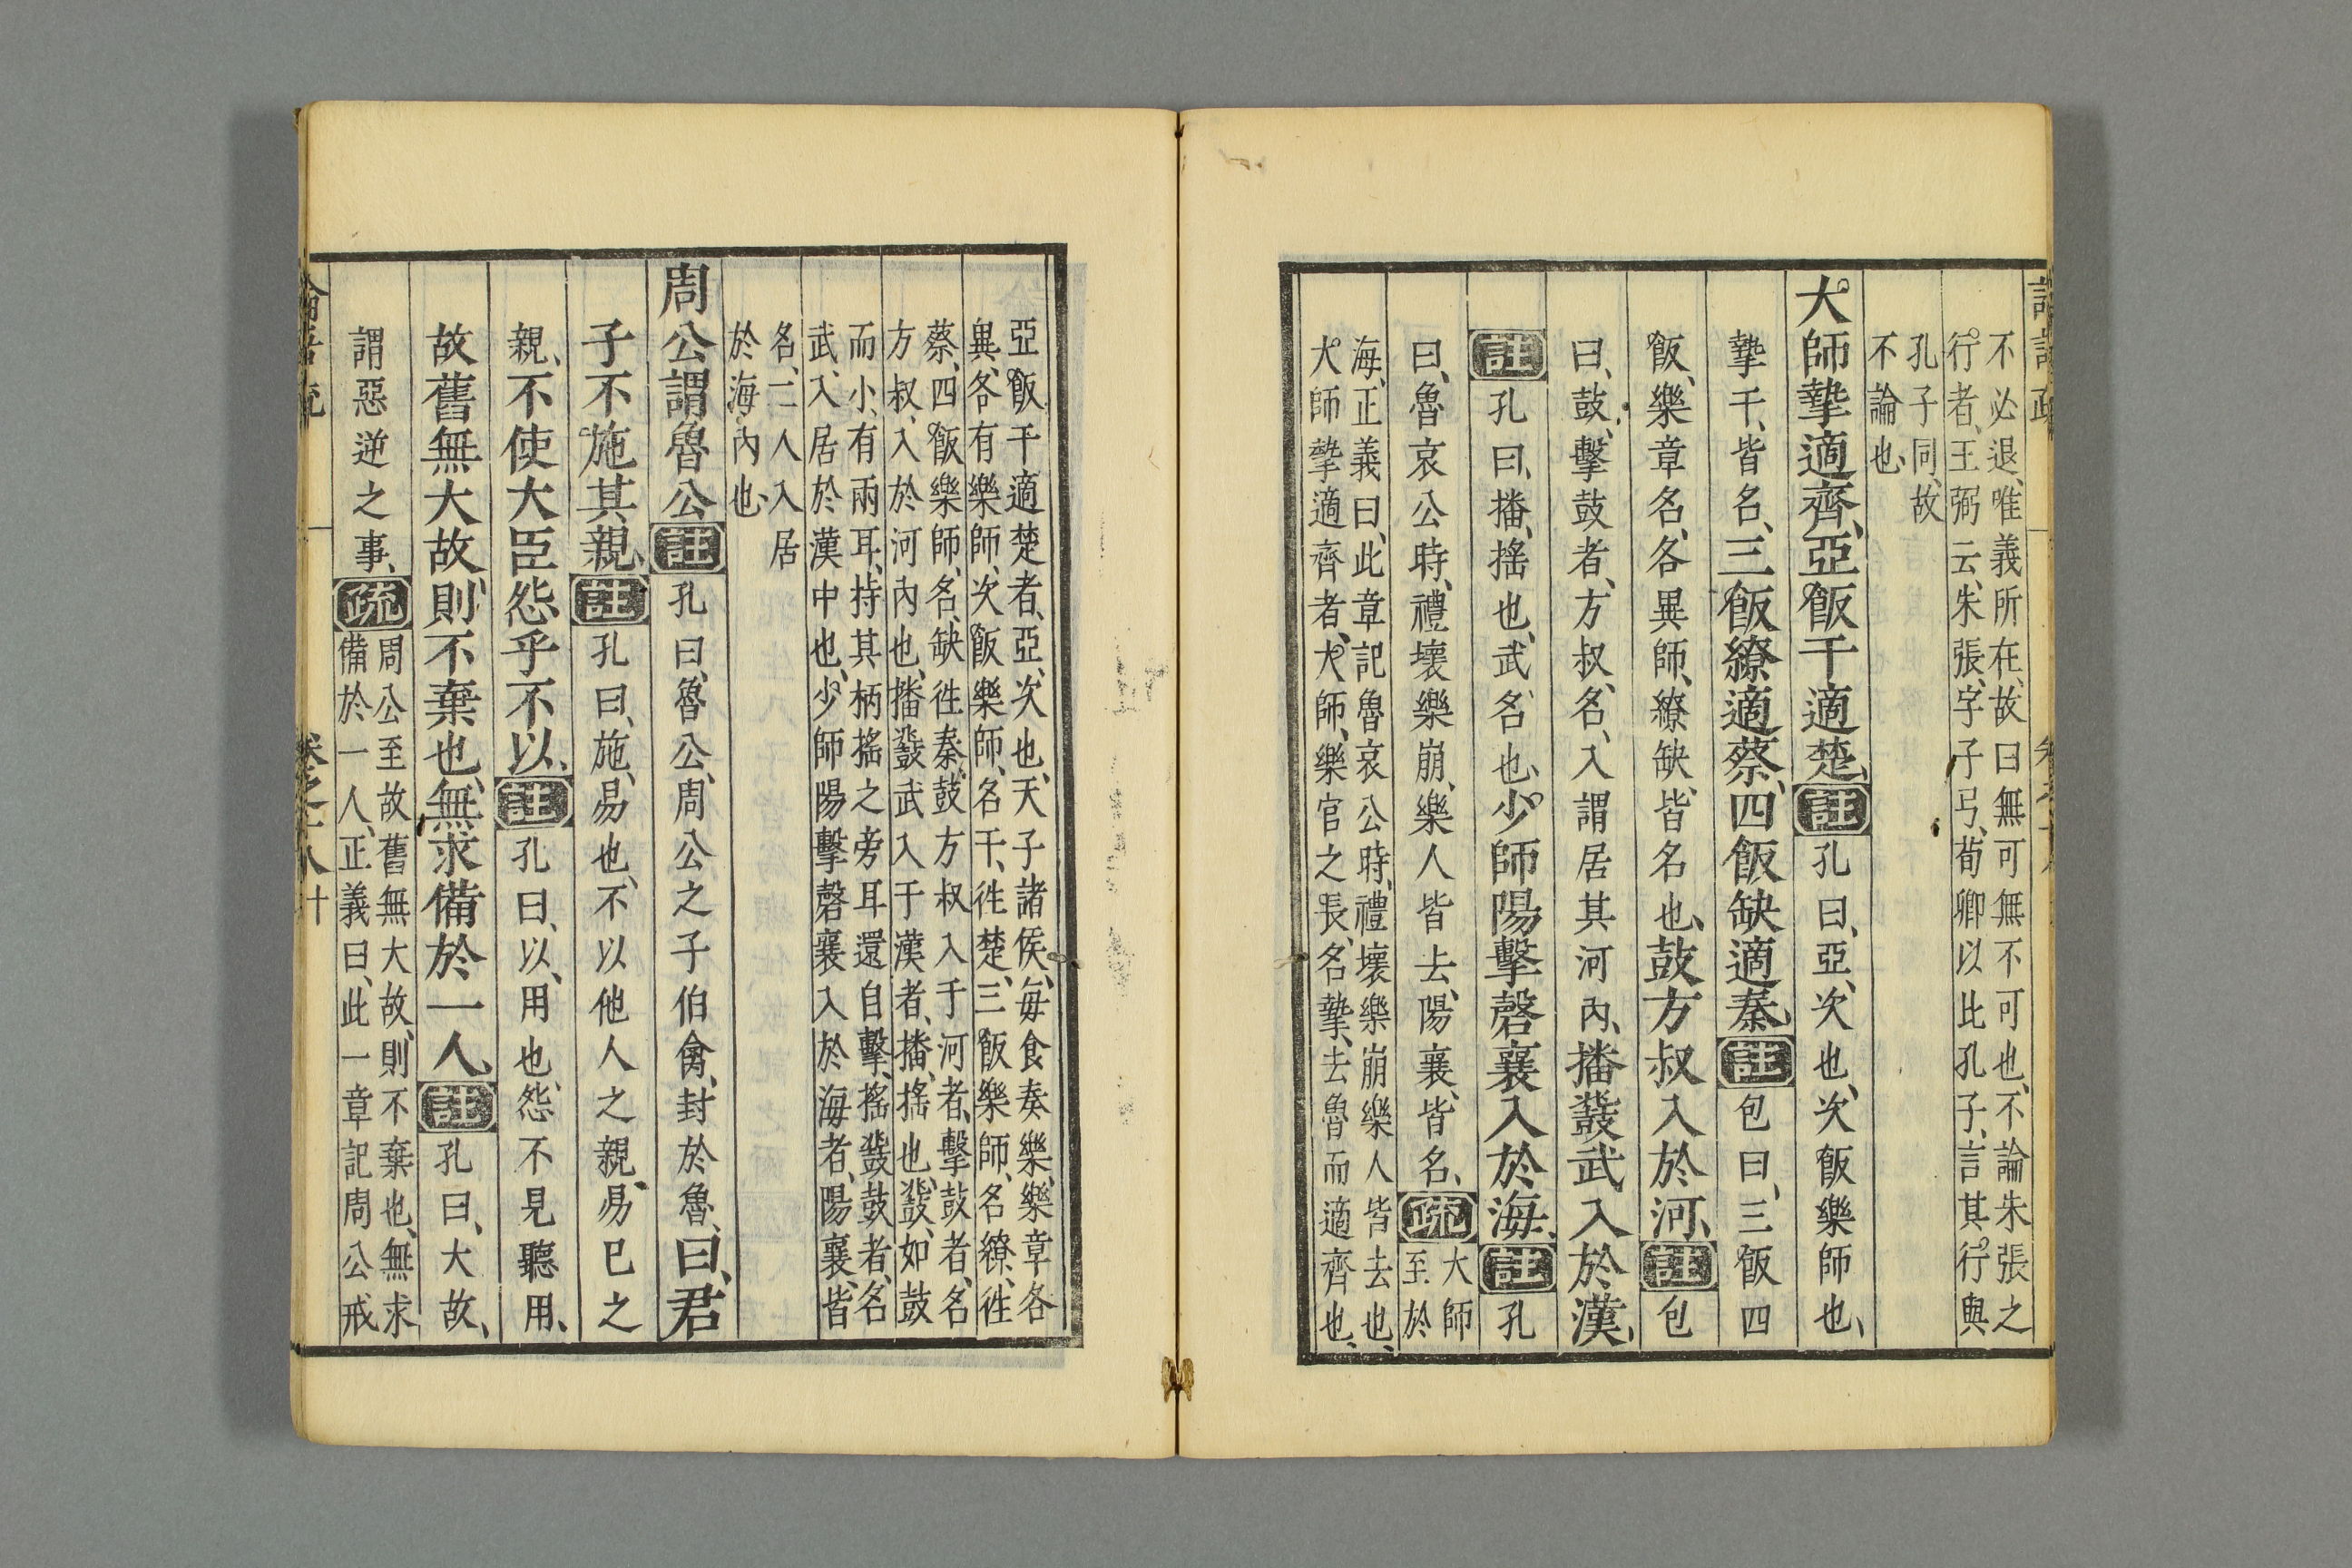 不必退、唯義所在、故曰無可無不可也、不論朱張之
行者、王弼云、朱張、字子弓、荀卿以此孔子、言其行與
孔子同、故
不論也、
大師摯適齊、亞飯干適楚、註孔曰、亞、次也、次飯樂師也、
摯干、皆名、三飯繚適蔡、四飯缺適秦、註包曰、三飯四
飯、樂章名、各異師、繚缺、皆名也、鼓方叔入於河、註包
曰、鼓、擊鼓者、方叔、名、入謂居其河內、播鼗武入於漢、
註孔曰、播、搖也、武、名也、少師陽擊磬襄入於海、註孔
曰、魯哀公時、禮壞樂崩、樂人皆去、陽襄、皆名、疏大師
至於
海、正義曰、此章記魯哀公時、禮壞樂崩樂人皆去也、
大師摯適齊者、大師、樂官之長、名摯、去魯而適齊也、
亞飯干適楚者、亞、次也、天子諸侯、每食奏樂、樂章各
異、各有樂師、次飯樂師、名干、徃楚、三飯樂師、名繚、徃
蔡、四飯樂師、名缺、徃秦、鼓方叔入于河者、擊鼓者、名
方叔、入於河內也、播鼗武入于漢者、播、搖也、鼗、如鼓
而小、有兩耳、持其柄搖之旁耳還自擊、搖鼗鼓者、名
武、入居於漢中也、少師陽擊磬襄入於海者、陽襄、皆
名、二人入居
於海內也、
周公謂魯公註孔曰、魯公、周公之子伯禽、封於魯、曰、君
子不施其親、註孔曰、施、易也、不以他人之親、易已之
親、不使大臣怨乎不以、註孔曰、以、用也、怨不見聽用、
故舊無大故、則不棄也、無求備於一人、註孔曰、大故、
謂惡逆之事、疏周公至故舊無大故、則不棄也、無求
備於一人、正義曰、此一章記周公戒
卷之十八 十